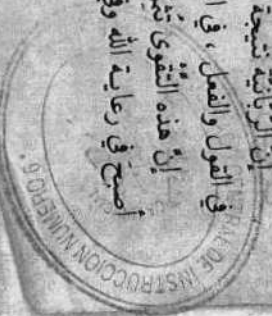 إن الربانية نتيجة
في القول والفعل ، في ا
إنّ هذه التّقوى
أصبح في رعاية الله وفي
DE INSTRUCCION NUMERO 6